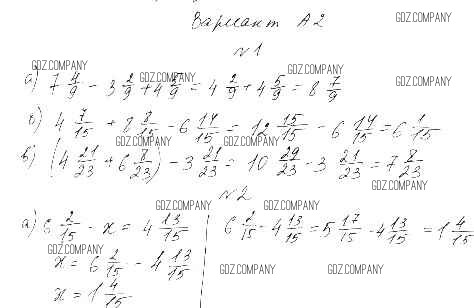 Вариант А2
GDZ.COMPANY
№1
GDZ.COMPANY
GDZ.COMPANY
GDZ.COMPANY
GDZ.COMPANY
а) 7 4/9 - 3 2/9 + 4 5/9 = 4 2/9 + 4 5/9 = 8 7/9
б) 4 7/15 + 8 8/15 - 6 14/15 = 12 15/15 - 6 14/15 = 6 1/15
GDZ.COMPANY
GDZ.COMPANY
в) (4 21/23 + 6 8/23) - 3 21/23 = 10 29/23 - 3 21/23 = 7 8/23
GDZ.COMPANY
№2
GDZ.COMPANY
GDZ.COMPANY
а) 6 2/15 - x = 4 13/15
6 2/15 - 4 13/15 = 5 17/15 - 4 13/15 = 1 4/15
GDZ.COMPANY
x = 6 2/15 - 4 13/15
GDZ.COMPANY
GDZ.COMPANY
x = 1 4/15